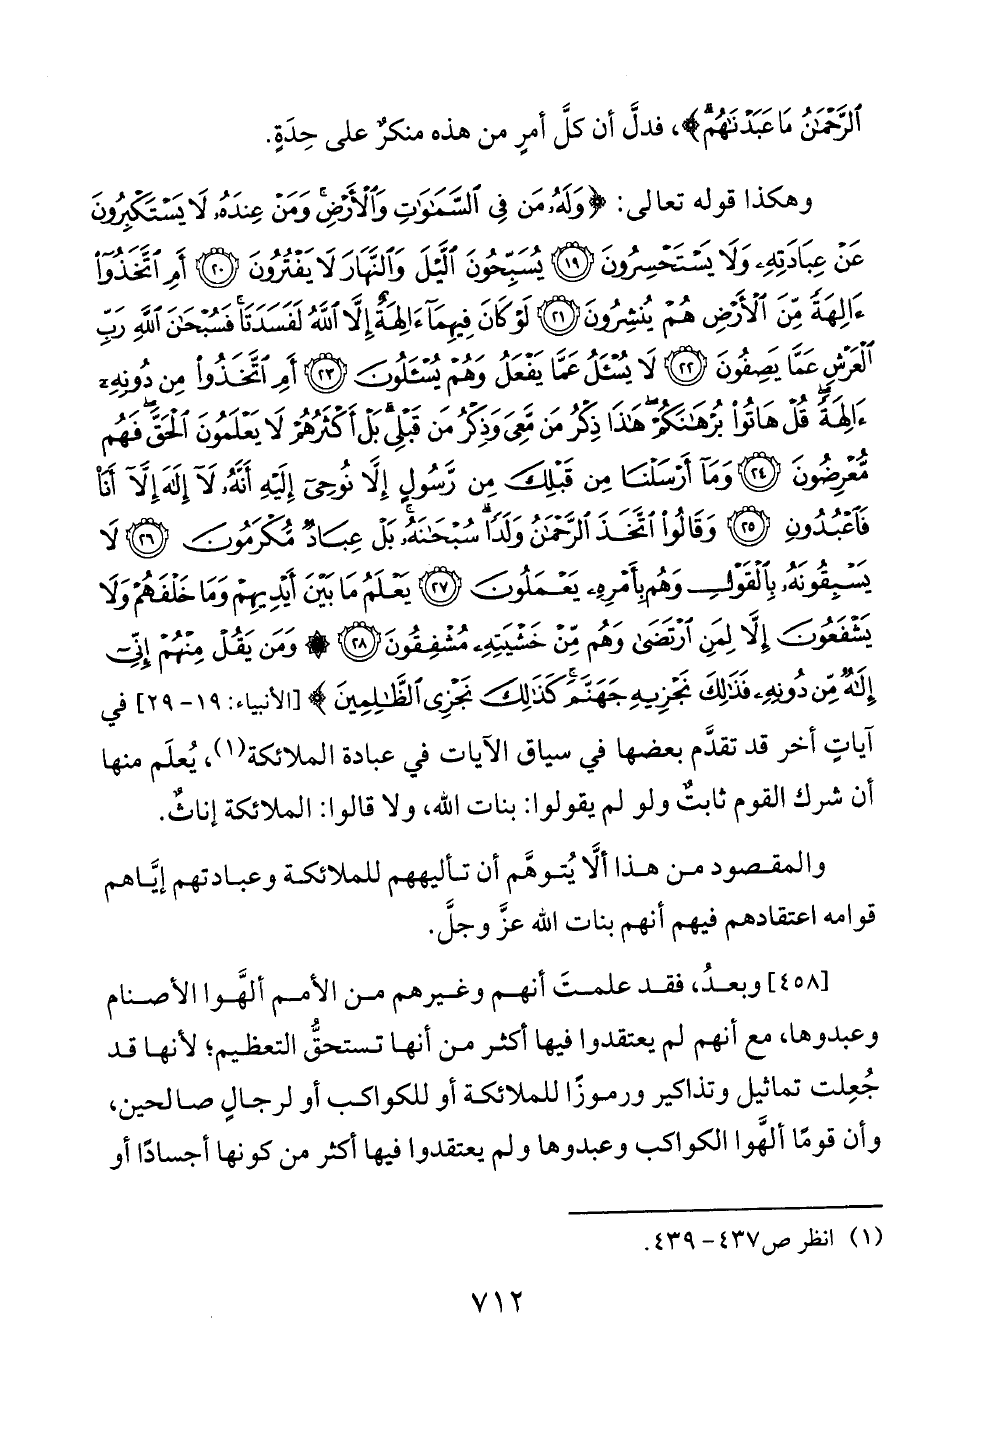 ٱلرَّحۡمَٰنُ مَا عَبَدۡنَٰهُمۗ﴾، فدلَّ أن كلَّ أمرٍ من هذه منكرٌ على حِدَةٍ.
وهكذا قوله تعالى: ﴿وَلَهُۥ مَن فِي ٱلسَّمَٰوَٰتِ وَٱلۡأَرۡضِۚ وَمَنۡ عِندَهُۥ لَا يَسۡتَكۡبِرُونَ
عَنۡ عِبَادَتِهِۦ وَلَا يَسۡتَحۡسِرُونَ ١٩ يُسَبِّحُونَ ٱلَّيۡلَ وَٱلنَّهَارَ لَا يَفۡتُرُونَ ٢٠ أَمِ ٱتَّخَذُوٓاْ
ءَالِهَةٗ مِّنَ ٱلۡأَرۡضِ هُمۡ يُنشِرُونَ ٢١ لَوۡ كَانَ فِيهِمَآ ءَالِهَةٌ إِلَّا ٱللَّهُ لَفَسَدَتَاۚ فَسُبۡحَٰنَ ٱللَّهِ رَبِّ
ٱلۡعَرۡشِ عَمَّا يَصِفُونَ ٢٢ لَا يُسۡـَٔلُ عَمَّا يَفۡعَلُ وَهُمۡ يُسۡـَٔلُونَ ٢٣ أَمِ ٱتَّخَذُواْ مِن دُونِهِۦٓ
ءَالِهَةٗۖ قُلۡ هَاتُواْ بُرۡهَٰنَكُمۡۖ هَٰذَا ذِكۡرُ مَن مَّعِيَ وَذِكۡرُ مَن قَبۡلِيۚ بَلۡ أَكۡثَرُهُمۡ لَا يَعۡلَمُونَ ٱلۡحَقَّۖ فَهُم
مُّعۡرِضُونَ ٢٤ وَمَآ أَرۡسَلۡنَا مِن قَبۡلِكَ مِن رَّسُولٍ إِلَّا نُوحِيٓ إِلَيۡهِ أَنَّهُۥ لَآ إِلَٰهَ إِلَّآ أَنَا۠
فَٱعۡبُدُونِ ٢٥ وَقَالُواْ ٱتَّخَذَ ٱلرَّحۡمَٰنُ وَلَدٗاۗ سُبۡحَٰنَهُۥۚ بَلۡ عِبَادٞ مُّكۡرَمُونَ ٢٦ لَا
يَسۡبِقُونَهُۥ بِٱلۡقَوۡلِ وَهُم بِأَمۡرِهِۦ يَعۡمَلُونَ ٢٧ يَعۡلَمُ مَا بَيۡنَ أَيۡدِيهِمۡ وَمَا خَلۡفَهُمۡ وَلَا
يَشۡفَعُونَ إِلَّا لِمَنِ ٱرۡتَضَىٰ وَهُم مِّنۡ خَشۡيَتِهِۦ مُشۡفِقُونَ ٢٨ ۞ وَمَن يَقُلۡ مِنۡهُمۡ إِنِّيٓ
إِلَٰهٞ مِّن دُونِهِۦ فَذَٰلِكَ نَجۡزِيهِ جَهَنَّمَۚ كَذَٰلِكَ نَجۡزِي ٱلظَّٰلِمِينَ﴾ [الأنبياء: ١٩ - ٢٩] في
آياتٍ أخر قد تقدَّم بعضها في سياق الآيات في عبادة الملائكة(١)، يُعلَم منها
أن شرك القوم ثابتٌ ولو لم يقولوا: بنات الله، ولا قالوا: الملائكة إناثٌ.
والمقصود من هذا ألَّا يُتوهَّم أن تأليههم للملائكة وعبادتهم إيَّاهم
قوامه اعتقادهم فيهم أنهم بنات الله عزَّ وجلَّ.
[٤٥٨] وبعدُ، فقد علمتَ أنهم وغيرهم من الأمم ألهَّوا الأصنام
وعبدوها، مع أنهم لم يعتقدوا فيها أكثر من أنها تستحقُّ التعظيم؛ لأنها قد
جُعِلت تماثيل وتذاكير ورموزًا للملائكة أو للكواكب أو لرجالٍ صالحين،
وأن قومًا ألهَّوا الكواكب وعبدوها ولم يعتقدوا فيها أكثر من كونها أجسادًا أو
(١) انظر ص٤٣٧ - ٤٣٩.
٧١٢